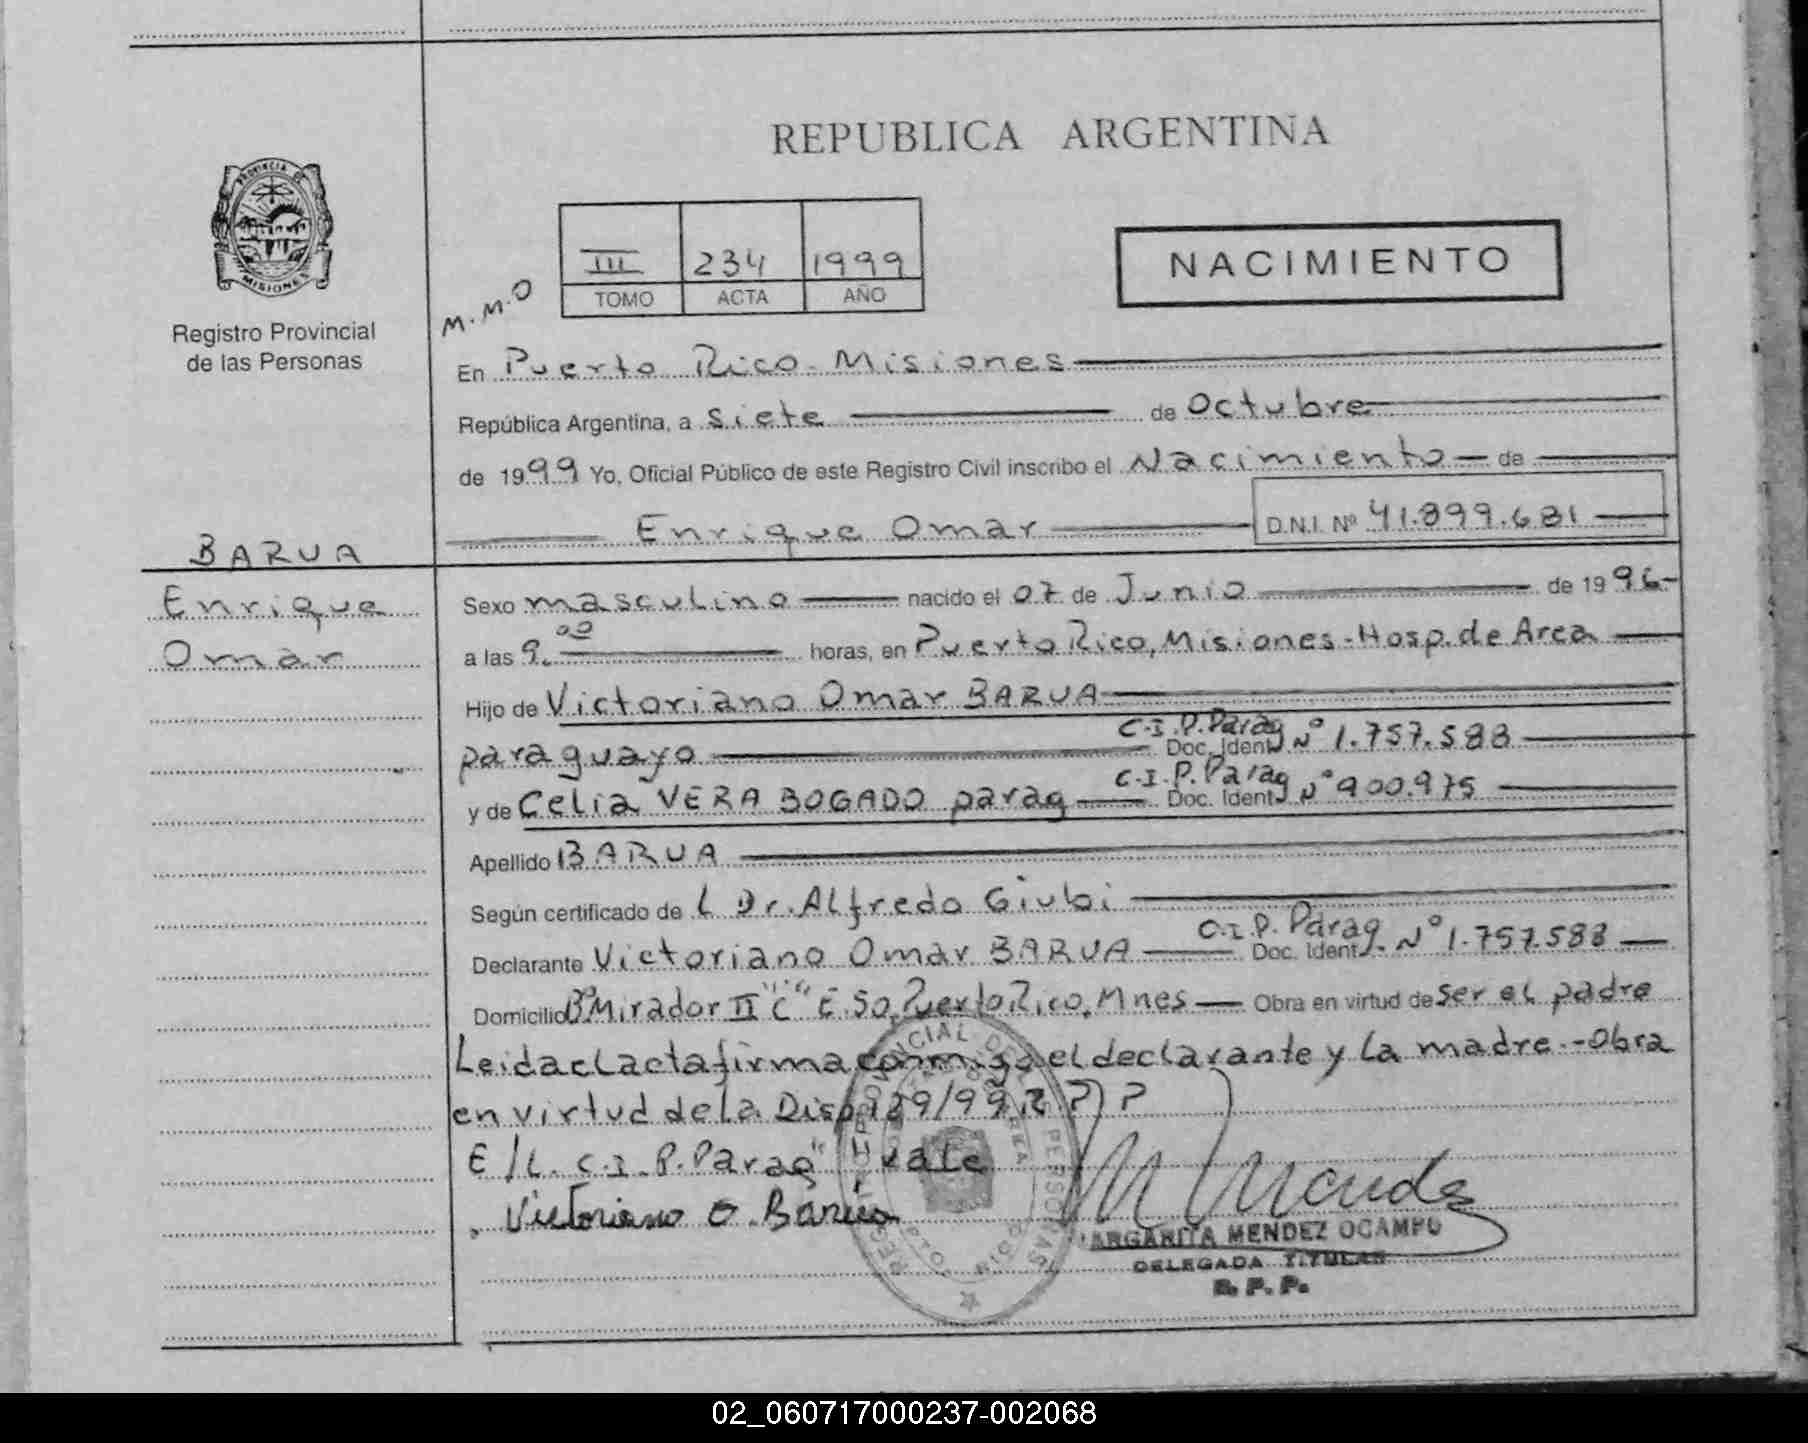 REPUBLICA ARGENTINA
PROVINCIA DE
MISIONES
Registro Provincial
de las Personas
III 234 1999
TOMO ACTA AÑO
NACIMIENTO
M.M.O
En Puerto Rico - Misiones
República Argentina, a siete de Octubre
de 1999 Yo, Oficial Público de este Registro Civil inscribo el Nacimiento de
Enrique Omar D.N.I. Nº 41.899.681
BARUA
Enrique
Omar
Sexo masculino nacido el 07 de Junio de 1996-
a las 9.00 horas, en Puerto Rico, Misiones - Hosp. de Area
Hijo de Victoriano Omar BARUA
paraguayo C.I.P. Parag Doc. Ident Nº 1.757.588
y de Celia VERA BOGADO parag C.I.P. Parag Doc. Ident Nº 900.975
Apellido BARUA
Según certificado de L Dr. Alfredo Giubi
Declarante Victoriano Omar BARUA C.I.P. Parag. Doc. Ident. Nº 1.757.588
Domicilio Bº Mirador II "C" E. 50, Puerto Rico, Mnes Obra en virtud de ser el padre
Leida el acta firma conmigo el declarante y la madre.- Obra
en virtud de la Disp 129/99 R.P.P
E/L. C.I.P. Parag" Vale
Victoriano O. Barúa
M Mendez
MARGARITA MENDEZ OCAMPO
DELEGADA TITULAR
R. P. P.
02_060717000237-002068